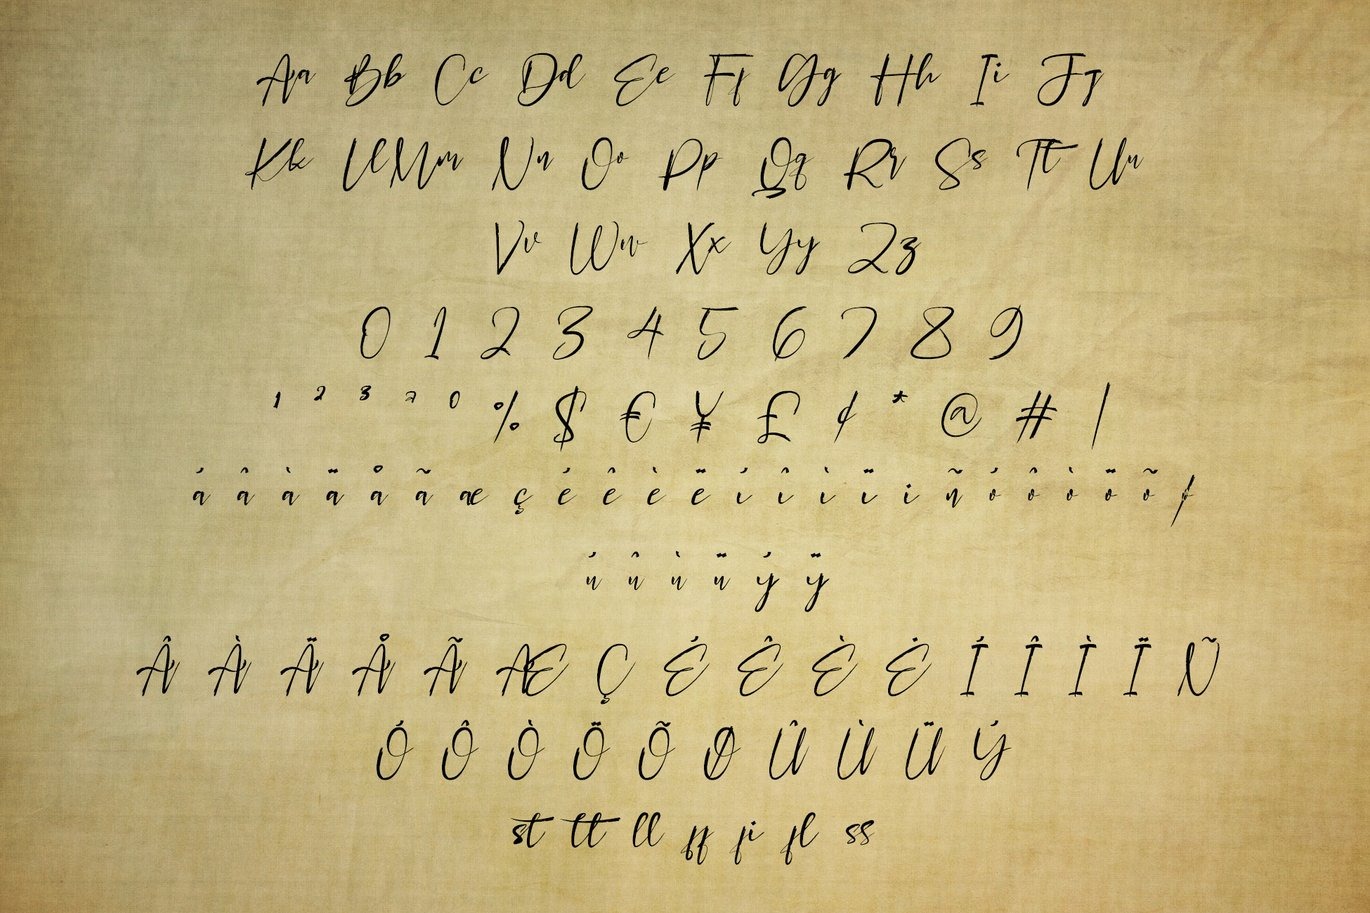 Aa Bb Cc Dd Ee Ff Gg Hh Ii Jj
Kk Ll Mm Nn Oo Pp Qq Rr Ss Tt Uu
Vv Ww Xx Yy Zz
0 1 2 3 4 5 6 7 8 9
¹ ² ³ ⁷ ⁰ % $ € ¥ £ ¢ * @ # |
á â à ä å ã æ ç é ê è ë í î ì ï i ñ ó ô ò ö õ ø
ú û ù ü ý ÿ
Â À Ä Å Ã Æ Ç É Ê È Ė Í Î Ì Ï Ñ
Ó Ô Ò Ö Õ Ø Û Ù Ü Ý
st tt ll ff fi fl ss